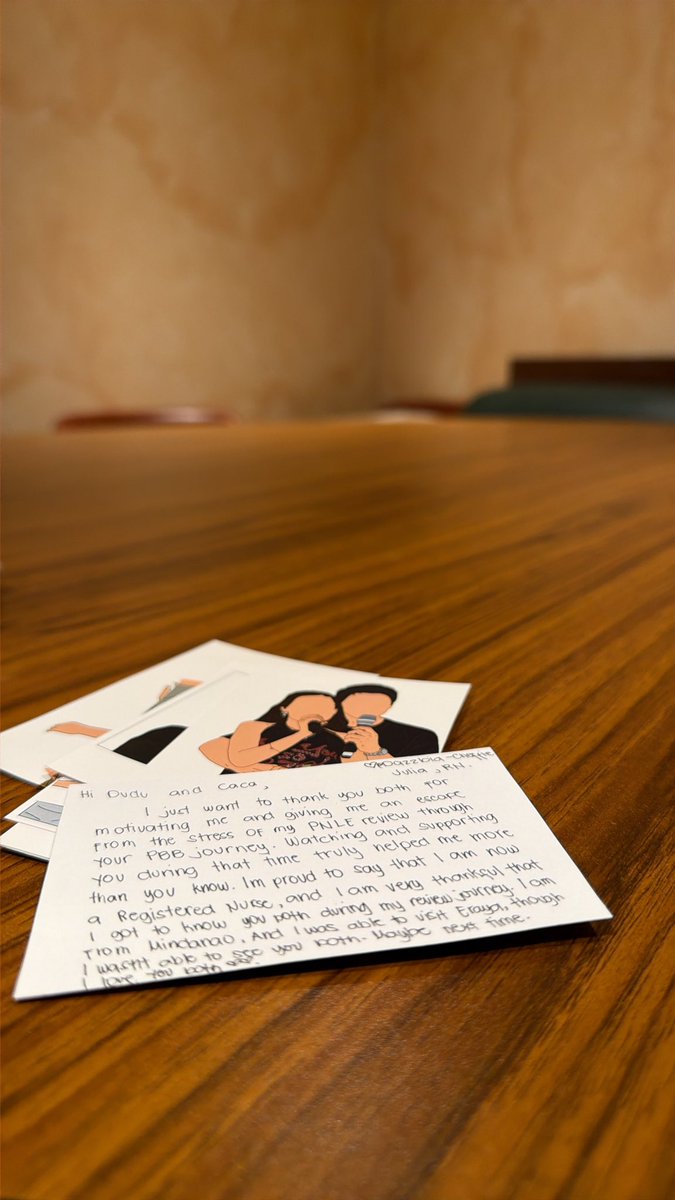 Julia, RN.
Hi Dudu and Caca,
I just want to thank you both for
motivating me and giving me an escape
from the stress of my PNLE review through
your PBB journey. Watching and supporting
you during that time truly helped me more
than you know. Im proud to say that I am now
a Registered Nurse, and I am very thankful that
I got to know you both during my review journey. I am
from Mindanao. And I was able to visit Eraya, though
I wasn't able to see you both. Maybe next time.
I love you both